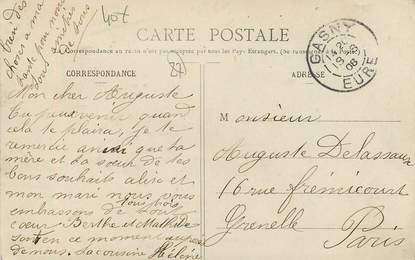 40f
CARTE POSTALE
La Correspondance au recto n'est pas acceptée par tous les Pays Étrangers. (Se renseigner
CORRESPONDANCE
ADRESSE
GASNY
EURE
08
Mon cher Auguste
Tu peux venir quand
cela te plaira, je te
remercie ainsi que ta
mère et ta sœur de tes
bons souhaits alice et
mon mari nous vous
embrassons de tout
cœur Berthe et Mathilde
sont en ce moment
de nous. La cousine Hélène
Monsieur
Auguste Delassaux
16 rue frémicourt
Grenelle
Paris